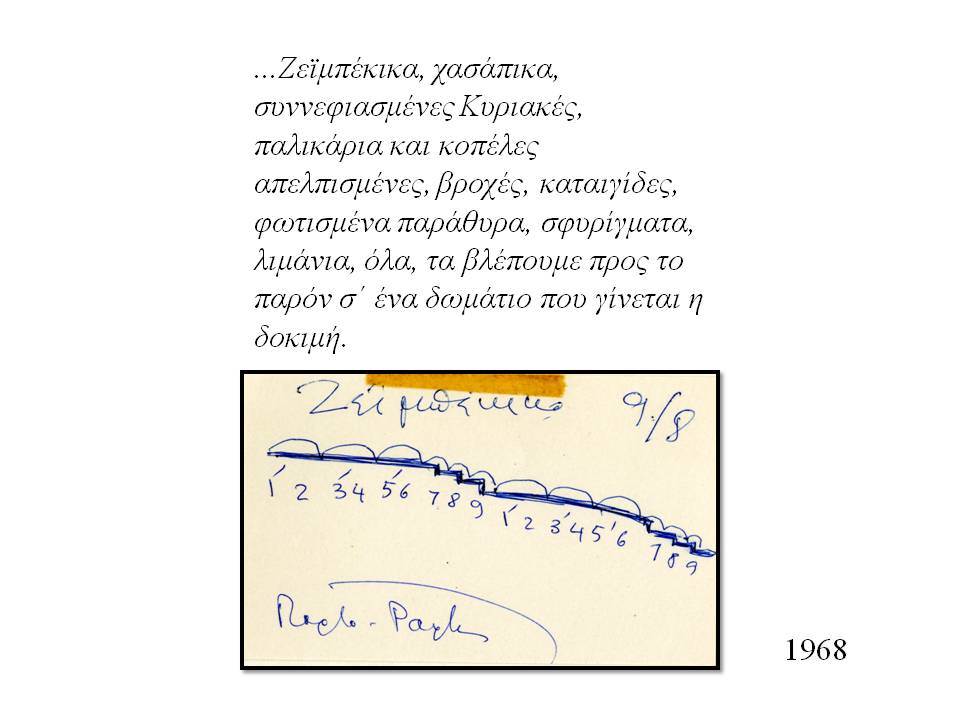 ...Ζεϊμπέκικα, χασάπικα,
συννεφιασμένες Κυριακές,
παλικάρια και κοπέλες
απελπισμένες, βροχές, καταιγίδες,
φωτισμένα παράθυρα, σφυρίγματα,
λιμάνια, όλα, τα βλέπουμε προς το
παρόν σ΄ ένα δωμάτιο που γίνεται η
δοκιμή.
Ζεϊμπέκικο 9/8
1 2 3 4 5 6 7 8 9 1 2 3 4 5 6 7 8 9
1968